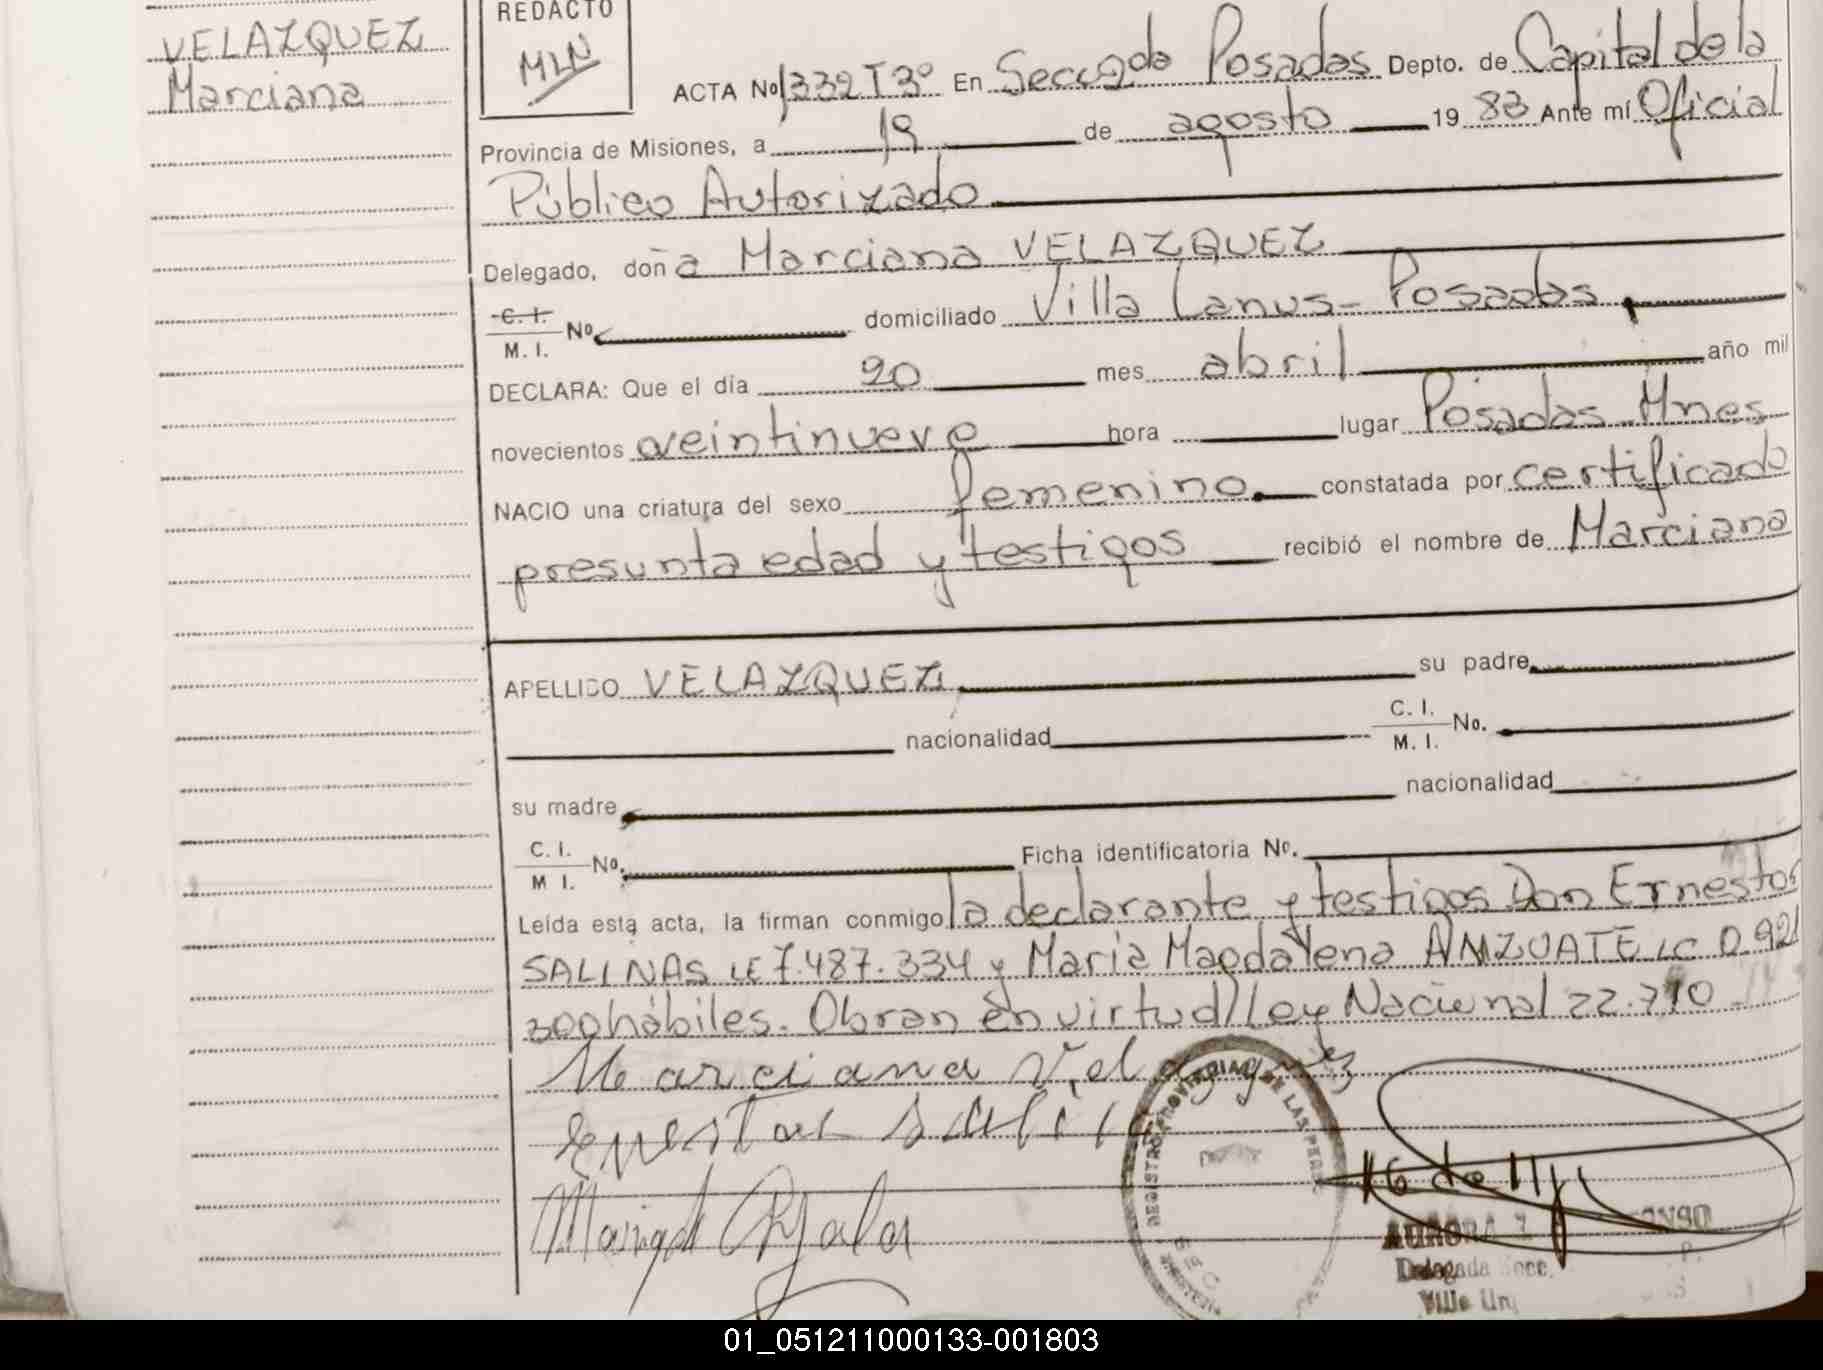 VELAZQUEZ
Marciana
REDACTO
MLN
ACTA No 1332 T 3º En Secc 9da Posadas Depto. de Capital de la
Provincia de Misiones, a 19 de agosto 19 83 Ante mí Oficial
Público Autorizado
Delegado, doña Marciana VELAZQUEZ
C. I.
M. I. No. domiciliado Villa Lanus - Posadas
DECLARA: Que el día 20 mes abril año mil
novecientos veintinueve hora lugar Posadas Mnes
NACIO una criatura del sexo femenino. constatada por certificado
presunta edad y testigos recibió el nombre de Marciana
APELLIDO VELAZQUEZ su padre
nacionalidad C. I. M. I. No.
su madre nacionalidad
C. I. M I. No. Ficha identificatoria No.
Leída esta acta, la firman conmigo la declarante y testigos Don Ernestor
SALINAS LE 7.487.334 y Maria Magdalena LC 0.921
300 hábiles. Obran en virtud/ Ley Nacional 22.710
Marciana Velazquez
REGISTRO PROVINCIAL DE LAS PERS
16 de 11
AURORA
Delegada Secc.
Villa Ur
01_051211000133-001803